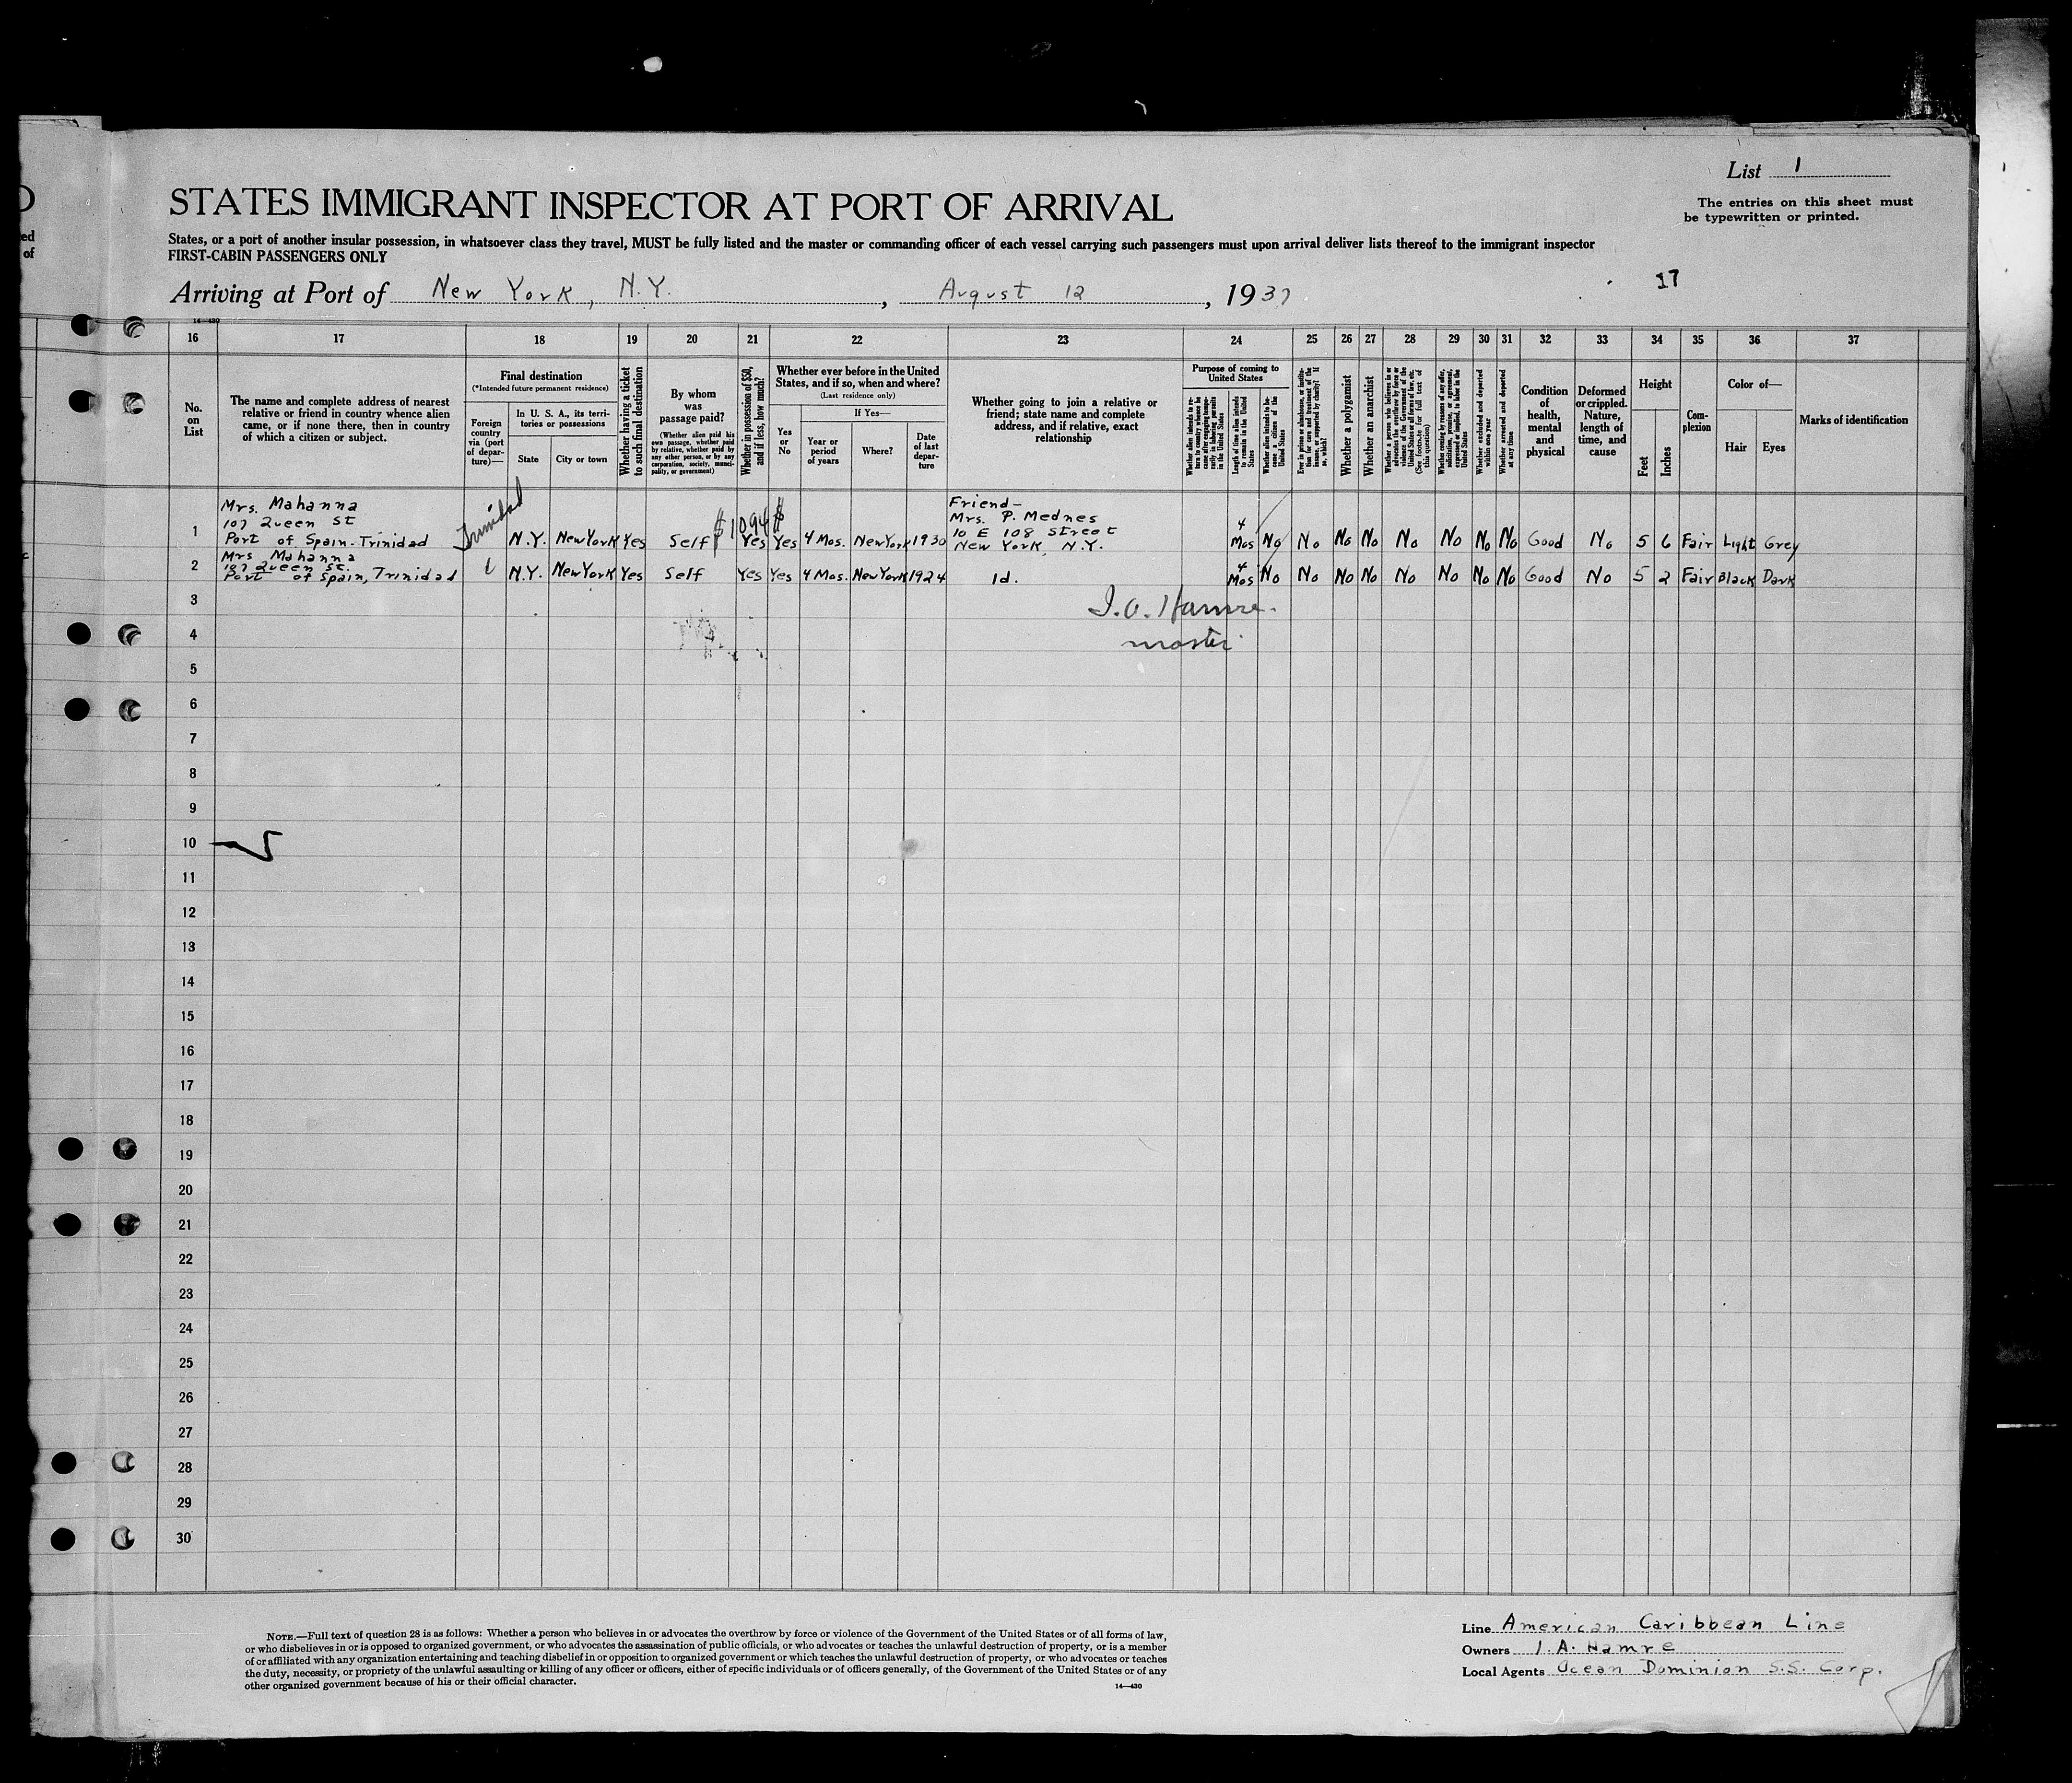 List 1
The entries on this sheet must
be typewritten or printed.
STATES IMMIGRANT INSPECTOR AT PORT OF ARRIVAL
States, or a port of another insular possession, in whatsoever class they travel, MUST be fully listed and the master or commanding officer of each vessel carrying such passengers must upon arrival deliver lists thereof to the immigrant inspector
FIRST-CABIN PASSENGERS ONLY
ed
of
Arriving at Port of New York, N.Y., August 12, 1937
17
14-430
16 17 18 19 20 21 22 23 24 25 26 27 28 29 30 31 32 33 34 35 36 37
No.
on
List
The name and complete address of nearest
relative or friend in country whence alien
came, or if none there, then in country
of which a citizen or subject.
Final destination
(*Intended future permanent residence)
Foreign
country
via (port
of depar-
ture)—
In U. S. A., its terri-
tories or possessions
State
City or town
Whether having a ticket
to such final destination
By whom
was
passage paid?
(Whether alien paid his
own passage, whether paid
by relative, whether paid by
any other person, or by any
corporation, society, munici-
pality, or government)
Whether in possession of $50,
and if less, how much?
Whether ever before in the United
States, and if so, when and where?
(Last residence only)
Yes
or
No
If Yes—
Year or
period
of years
Where?
Date
of last
depar-
ture
Whether going to join a relative or
friend; state name and complete
address, and if relative, exact
relationship
Purpose of coming to
United States
Whether alien intends to re-
turn to country whence he
came after engaging tempo-
rarily in laboring pursuits
in the United States
Length of time alien intends
to remain in the United
States
Whether alien intends to be-
come a citizen of the
United States
Ever in prison or almshouse, or institu-
tion for care and treatment of the
insane, or supported by charity? If
so, which?
Whether a polygamist
Whether an anarchist
Whether a person who believes in or
advocates the overthrow by force or
violence of the Government of the
United States or all forms of law, etc.
(See footnote for full text of
this question)
Whether coming by reasons of any offer,
solicitation, promise, or agreement,
expressed or implied, to labor in the
United States
Whether excluded and deported
within one year
Whether arrested and deported
at any time
Condition
of
health,
mental
and
physical
Deformed
or crippled.
Nature,
length of
time, and
cause
Height
Feet
Inches
Com-
plexion
Color of—
Hair
Eyes
Marks of identification
Mrs. Mahanna
107 Queen St
1 Port of Spain-Trinidad Trinidad N.Y. New York Yes Self $1094 Yes Yes 4 Mos. New York 1930
Friend-
Mrs. P. Mednes
10 E 108 Street
New York, N.Y.
4
Mos No No No No No No No No Good No 5 6 Fair Light Grey
Mrs Mahanna
107 Queen St.
2 Port of Spain, Trinidad N.Y. New York Yes Self Yes Yes 4 Mos. New York 1924 Id. 4 Mos No No No No No No No No Good No 5 2 Fair Black Dark
3
master
4
5
6
7
8
9
10
11
12
13
14
15
16
17
18
19
20
21
22
23
24
25
26
27
28
29
30
NOTE.—Full text of question 28 is as follows: Whether a person who believes in or advocates the overthrow by force or violence of the Government of the United States or of all forms of law,
or who disbelieves in or is opposed to organized government, or who advocates the assassination of public officials, or who advocates or teaches the unlawful destruction of property, or is a member
of or affiliated with any organization entertaining and teaching disbelief in or opposition to organized government or which teaches the unlawful destruction of property, or who advocates or teaches
the duty, necessity, or propriety of the unlawful assaulting or killing of any officer or officers, either of specific individuals or of officers generally, of the Government of the United States or of any
other organized government because of his or their official character.
14—430
Line American Caribbean Line
Owners I.A. Hamre
Local Agents Ocean Dominion S.S. Corp.